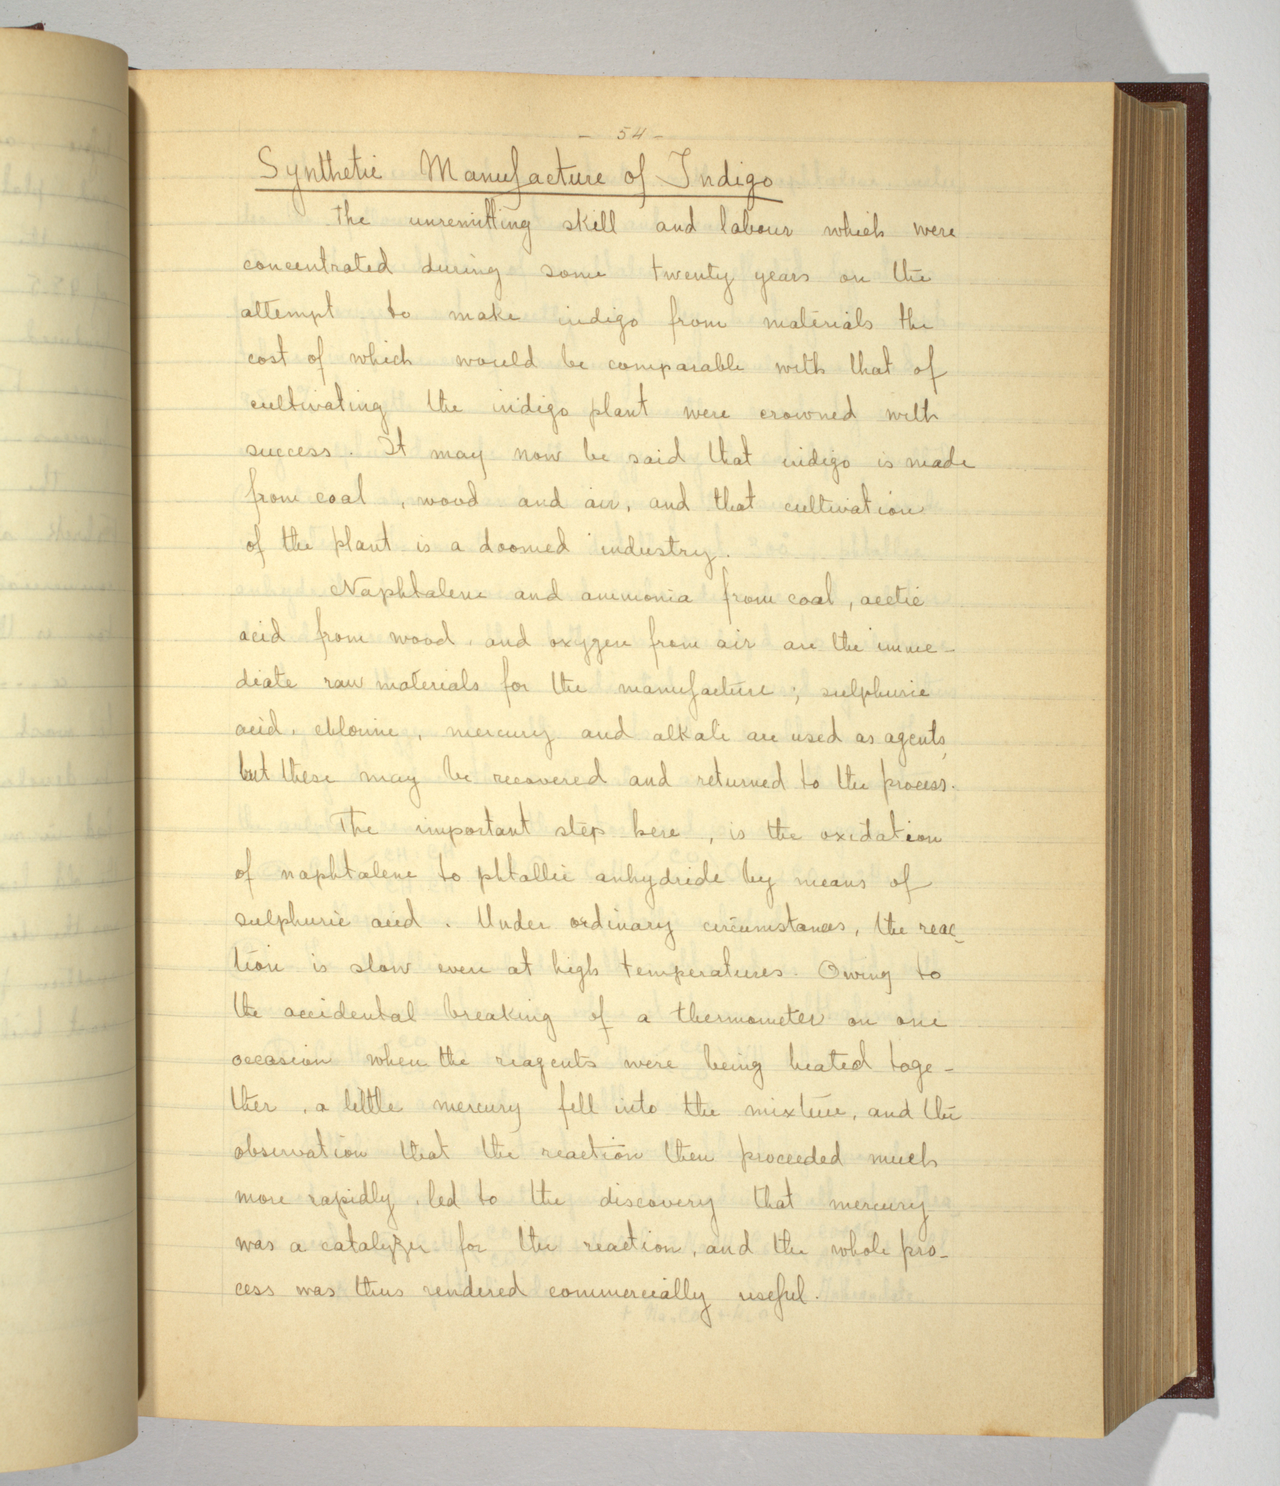 - 54 -
Synthetic Manufacture of Indigo
The unremitting skill and labour which were
concentrated during some twenty years on the
attempt to make indigo from materials the
cost of which would be comparable with that of
cultivating the indigo plant were crowned with
success. It may now be said that indigo is made
from coal, wood and air, and that cultivation
of the plant is a doomed industry.
Naphtalene and ammonia from coal, acetic
acid from wood and oxygen from air are the imme-
diate raw materials for the manufacture; sulphuric
acid, chlorine, mercury and alkali are used as agents,
but these may be recovered and returned to the process.
The important step here, is the oxidation
of naphtalene to phtallic anhydride by means of
sulphuric acid. Under ordinary circumstances, the reac-
tion is slow even at high temperatures. Owing to
the accidental breaking of a thermometer on one
occasion when the reagents were being heated toge-
ther, a little mercury fell into the mixture, and the
observation that the reaction then proceeded much
more rapidly, led to the discovery that mercury
was a catalyzer for the reaction, and the whole pro-
cess was thus rendered commercially useful.